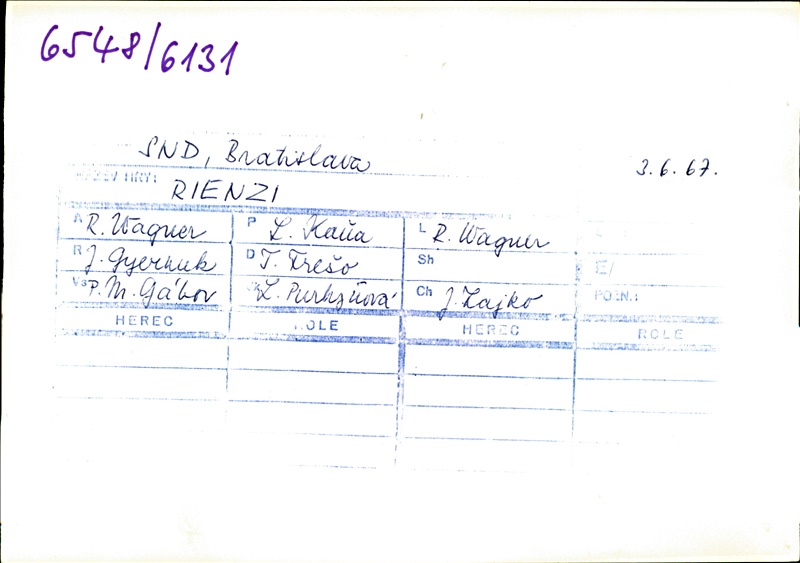 6548/6131
SND, Bratislava 3.6.67.
NÁZEV HRY: RIENZI
A R. Wagner P L. Kaňa L R. Wagner
R J. Gyermek D T. Frešo Sh
P. M. Gábor L. Purkyňová Ch J. Zajko POZN.:
HEREC ROLE HEREC ROLE